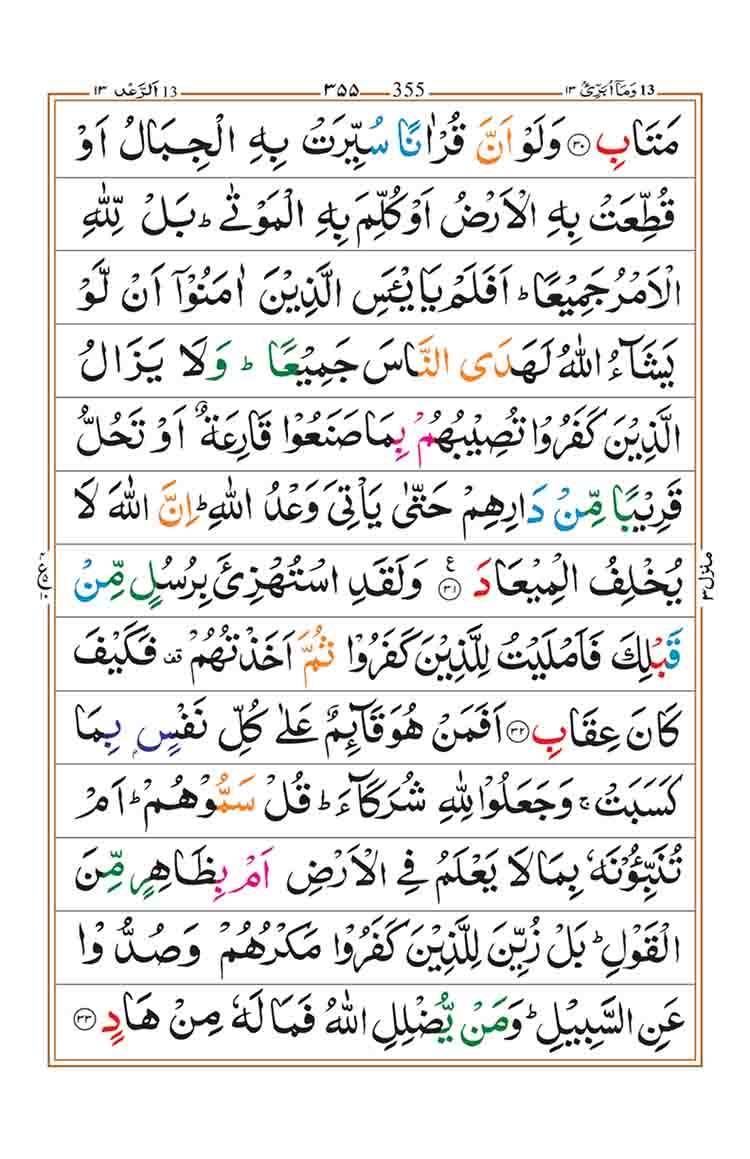 13 وَمَآ اُبَرِّئُ ١٣ 355 ٣٥٥ 13 اَلرَّعْد ١٣
مَتَابِ ﴿۳۰﴾ وَلَوْ اَنَّ قُرْاٰنًا سُيِّرَتْ بِهِ الْجِبَالُ اَوْ
قُطِّعَتْ بِهِ الْاَرْضُ اَوْ كُلِّمَ بِهِ الْمَوْتٰىؕ بَلْ لِّلّٰهِ
الْاَمْرُ جَمِيْعًاؕ اَفَلَمْ يَايْـَٔسِ الَّذِيْنَ اٰمَنُوْۤا اَنْ لَّوْ
يَشَآءُ اللّٰهُ لَهَدَى النَّاسَ جَمِيْعًاؕ وَلَا يَزَالُ
الَّذِيْنَ كَفَرُوْا تُصِيْبُهُمْ بِمَا صَنَعُوْا قَارِعَةٌ اَوْ تَحُلُّ
قَرِيْبًا مِّنْ دَارِهِمْ حَتّٰى يَاْتِىَ وَعْدُ اللّٰهِؕ اِنَّ اللّٰهَ لَا
يُخْلِفُ الْمِيْعَادَ ﴿۳۱﴾ ع وَلَقَدِ اسْتُهْزِئَ بِرُسُلٍ مِّنْ
قَبْلِكَ فَاَمْلَيْتُ لِلَّذِيْنَ كَفَرُوْا ثُمَّ اَخَذْتُهُمْ قف فَكَيْفَ
كَانَ عِقَابِ ﴿۳۲﴾ اَفَمَنْ هُوَ قَآئِمٌ عَلٰى كُلِّ نَفْسٍۢ بِمَا
كَسَبَتْۚ وَجَعَلُوْا لِلّٰهِ شُرَكَآءَؕ قُلْ سَمُّوْهُمْؕ اَمْ
تُنَبِّـُٔوْنَهٗ بِمَا لَا يَعْلَمُ فِى الْاَرْضِ اَمْ بِظَاهِرٍ مِّنَ
الْقَوْلِؕ بَلْ زُيِّنَ لِلَّذِيْنَ كَفَرُوْا مَكْرُهُمْ وَصُدُّوْا
عَنِ السَّبِيْلِؕ وَمَنْ يُّضْلِلِ اللّٰهُ فَمَا لَهٗ مِنْ هَادٍ ﴿۳۳﴾
منزل ۳